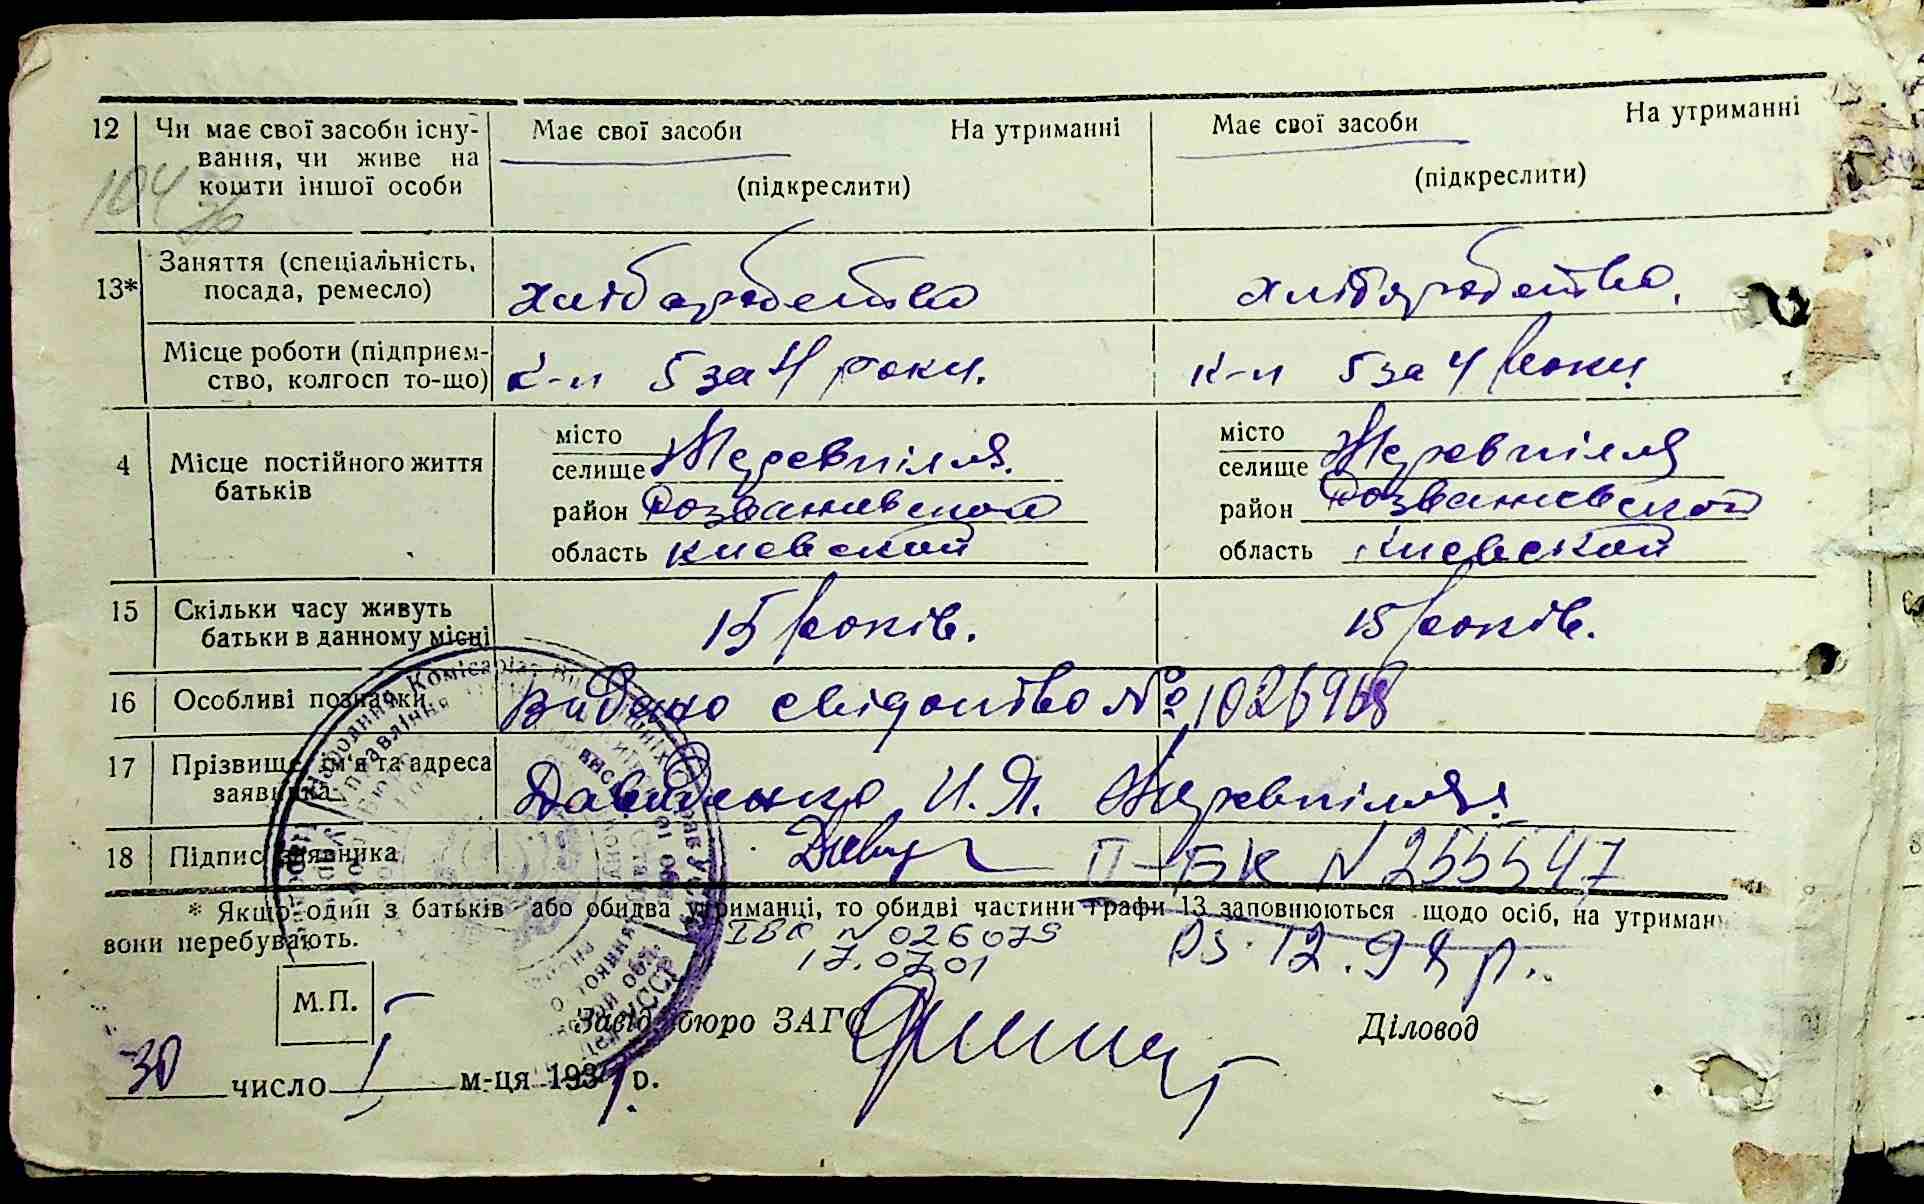 12 Чи має свої засоби існу- Має свої засоби На утриманні Має свої засоби На утриманні
вання, чи живе на
кошти іншої особи (підкреслити) (підкреслити)
104
Заняття (спеціальність,
13* посада, ремесло) хліборобство хліборобство.
Місце роботи (підприєм-
ство, колгосп то-що) к-п 5 за 4 роки. к-п 5 за 4 роки
місто місто
4 Місце постійного життя селище Жеревпілля. селище Жеревпілля
батьків район Розважевской район Розважевской
область киевской область Киевской
15 Скільки часу живуть
батьки в данному місці 15 років. 15 років.
16 Особливі позначки Видано свідоцтво № 1026968
17 Прізвище, ім'я та адреса
заявника Давиденко И. Я. Жеревпілля.
18 Підпис заявника П-БК N 255547
* Якщо один з батьків або обидва утриманці, то обидві частини графи 13 заповнюються щодо осіб, на утриман
вони перебувають.
ІБК N 026079
17.07.01
03.12.98 р.
М.П.
Завід. бюро ЗАГС Діловод
30 число І м-ця 193 р.